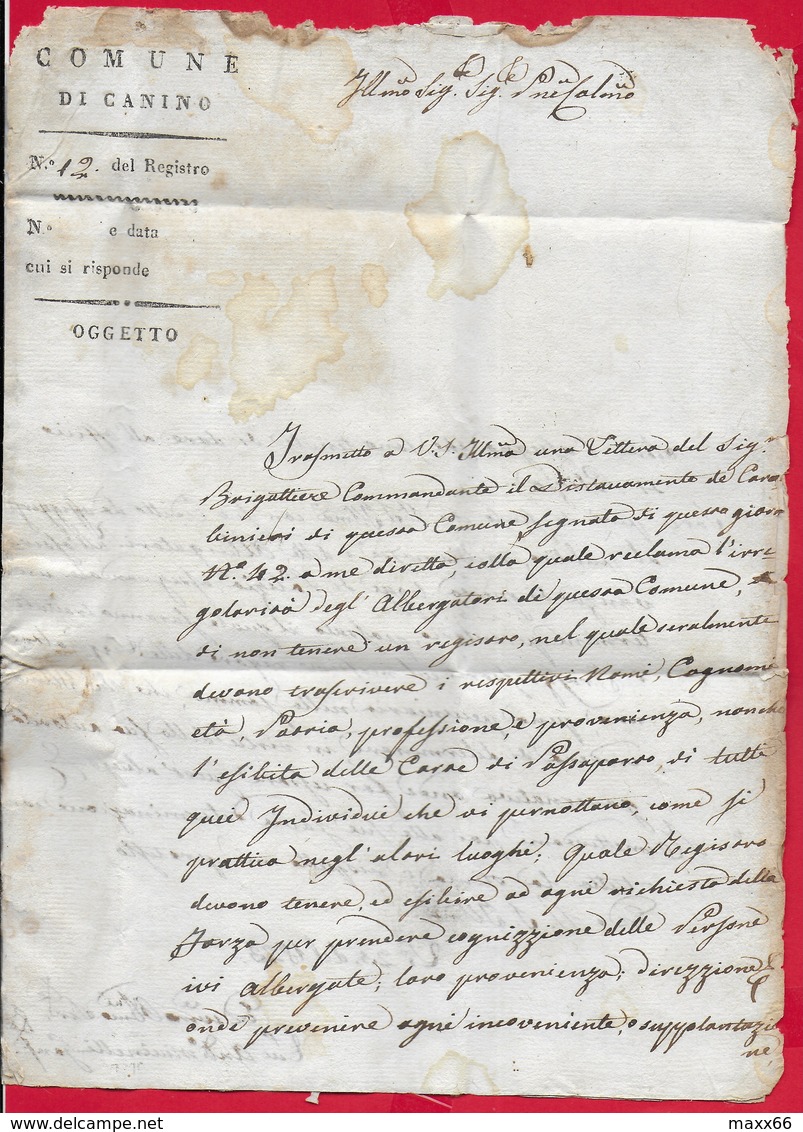 COMUNE
DI CANINO
N.º 12. del Registro
N.º e data
cui si risponde
OGGETTO
Illmo Sig.e Sig.e Pne Colmo
Trasmetto a V.S. Illma una Lettera del Sig.r
Brigattiere Commandante il Distaccamento de Cara
binieri di questa Comune segnata di questo giorno
N.º 42. a me diretta, colla quale reclama l'irre
golarità degl'Albergatori di questa Comune,
di non tenere un registro, nel quale seralmente
devono trascrivere i respettivi Nomi, Cognomi
età, Patria, professione, e provenienza, nonche
l'esibita delle Carte di Passaporto, di tutti
quei Individui che vi pernottano, come si
prattica negl'altri luoghi; Quale Registro
devono tenere, ed esibire ad ogni richiesta della
Forza per prendere cognizzione delle Persone
ivi albergate, loro provenienza, direzzione &
onde prevenire ogni incoveniente, o supplantazio
ne,
maxx66